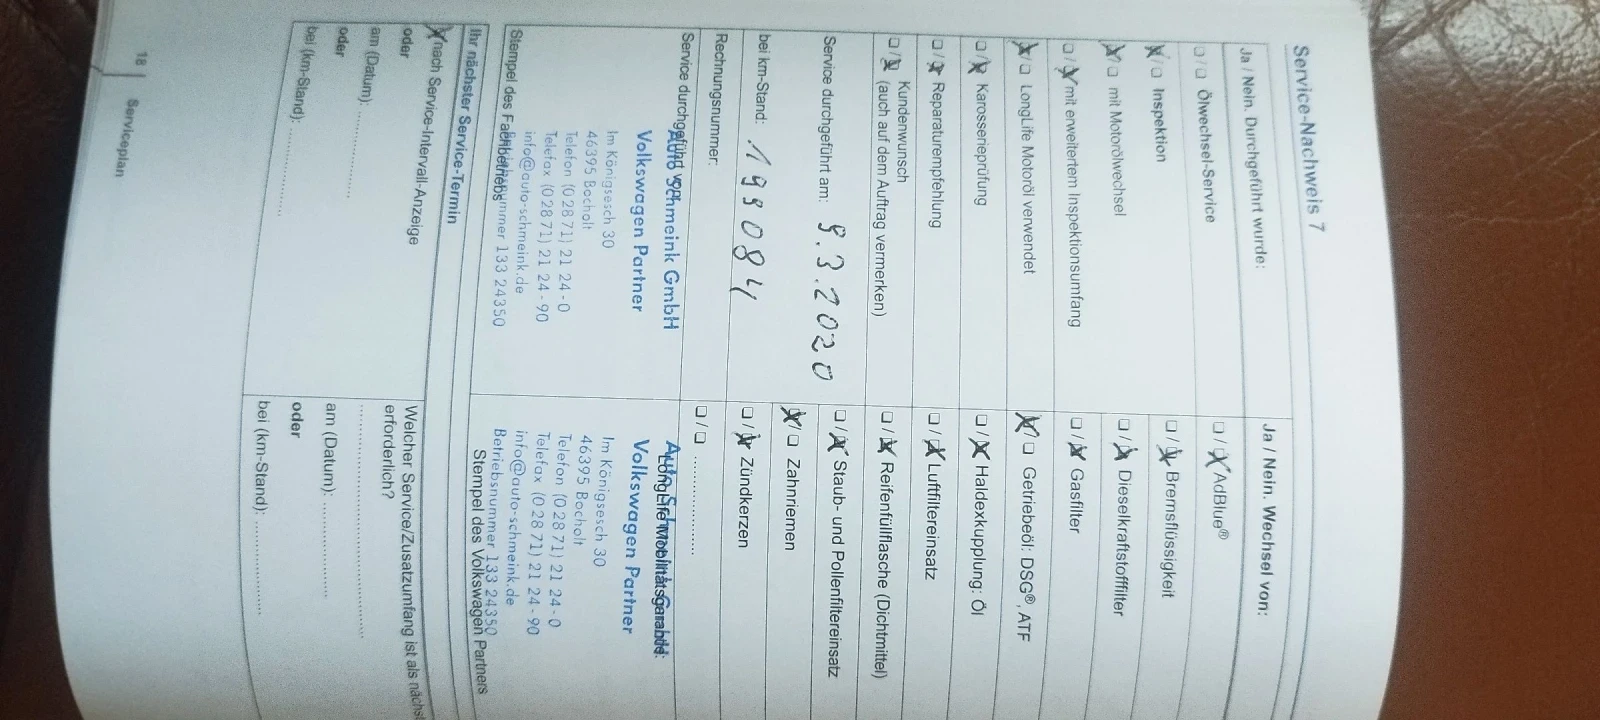 Service-Nachweis 7
Ja / Nein. Durchgeführt wurde:
☐ / ☐ Ölwechsel-Service
☒ / ☐ Inspektion
☒ / ☐ mit Motorölwechsel
☐ / ☒ mit erweitertem Inspektionsumfang
☒ / ☐ LongLife Motoröl verwendet
☐ / ☒ Karosserieprüfung
☐ / ☒ Reparaturempfehlung
☐ / ☒ Kundenwunsch
(auch auf dem Auftrag vermerken)
Service durchgeführt am: 9.3.2020
bei km-Stand: 199084
Rechnungsnummer:
Service durchgeführt von:
Auto Schmeink GmbH
Volkswagen Partner
Im Königsesch 30
46395 Bocholt
Telefon (0 28 71) 21 24-0
Telefax (0 28 71) 21 24-90
info@auto-schmeink.de
Betriebsnummer 133 24350
Stempel des Fachbetriebs
Ja / Nein. Wechsel von:
☐ / ☒ AdBlue®
☐ / ☒ Bremsflüssigkeit
☐ / ☒ Dieselkraftstofffilter
☐ / ☒ Gasfilter
☒ / ☐ Getriebeöl: DSG®, ATF
☐ / ☒ Haldexkupplung: Öl
☐ / ☒ Luftfiltereinsatz
☐ / ☒ Reifenfüllflasche (Dichtmittel)
☐ / ☒ Staub- und Pollenfiltereinsatz
☒ / ☐ Zahnriemen
☐ / ☒ Zündkerzen
☐ / ☐ ....................
LongLife Mobilitätsgarantie:
Auto Schmeink GmbH
Volkswagen Partner
Im Königsesch 30
46395 Bocholt
Telefon (0 28 71) 21 24-0
Telefax (0 28 71) 21 24-90
info@auto-schmeink.de
Betriebsnummer 133 24350
Stempel des Volkswagen Partners
Ihr nächster Service-Termin
☒ nach Service-Intervall-Anzeige
oder
am (Datum): ....................
oder
bei (km-Stand): ....................
Welcher Service/Zusatzumfang ist als nächst
erforderlich?
........................................
am (Datum): ....................
oder
bei (km-Stand): ....................
18 | Serviceplan